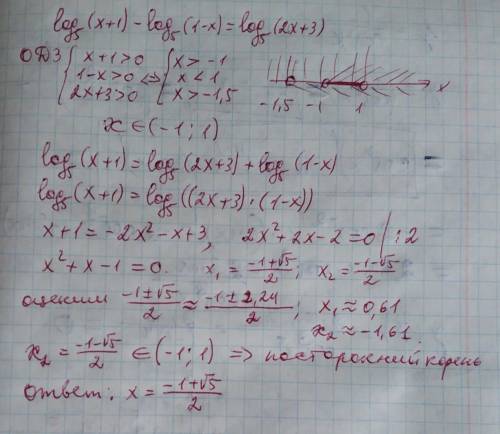 log₅(x+1) - log₅(1-x) = log₅(2x+3)
ОДЗ { x+1>0 { x>-1
1-x>0 <=> x<1
2x+3>0 x>-1,5
-1,5 -1 1 x
x ∈ (-1; 1)
log₅(x+1) = log₅(2x+3) + log₅(1-x)
log₅(x+1) = log₅((2x+3)·(1-x))
x+1 = -2x²-x+3, 2x²+2x-2=0 | :2
x²+x-1=0. x₁ = (-1+√5)/2; x₂ = (-1-√5)/2
оценим (-1±√5)/2 ≈ (-1±2,24)/2; x₁ ≈ 0,61
x₂ ≈ -1,61.
x₂ = (-1-√5)/2 ∈ (-1; 1) => посторонний корень
ответ: x = (-1+√5)/2